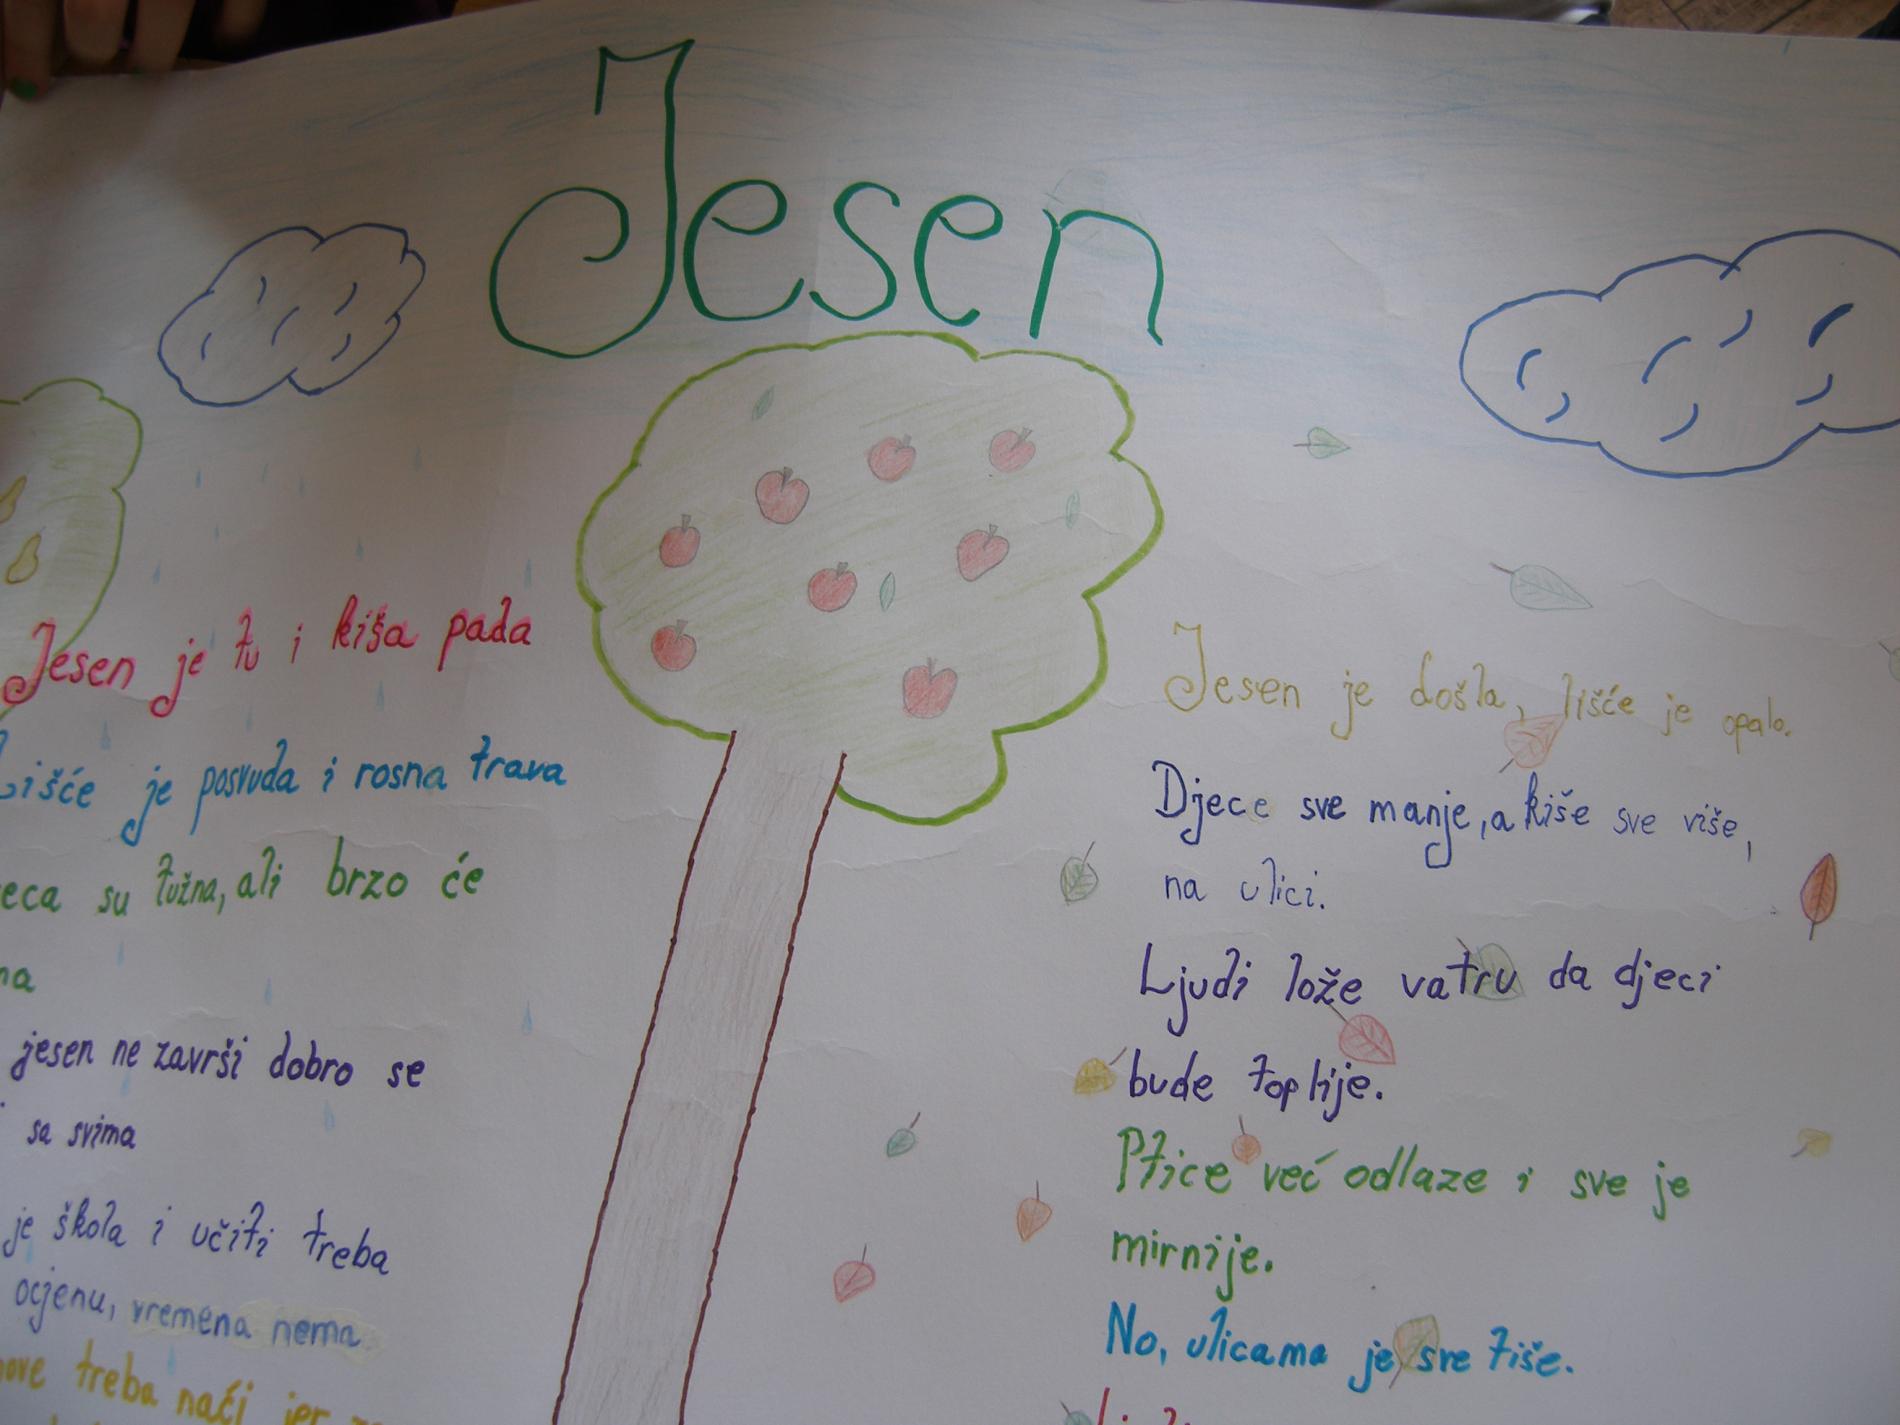 Jesen
Jesen je tu i kiša pada
Lišće je posvuda i rosna trava
su tužna, ali brzo će
jesen ne završi dobro se
sa svima
je škola i učiti treba
ocjenu, vremena nema
treba naći jer
Jesen je došla, lišće je opalo.
Djece sve manje, a kiše sve više,
na ulici.
Ljudi lože vatru da djeci
bude toplije.
Ptice već odlaze i sve je
mirnije.
No, ulicama je sve tiše.